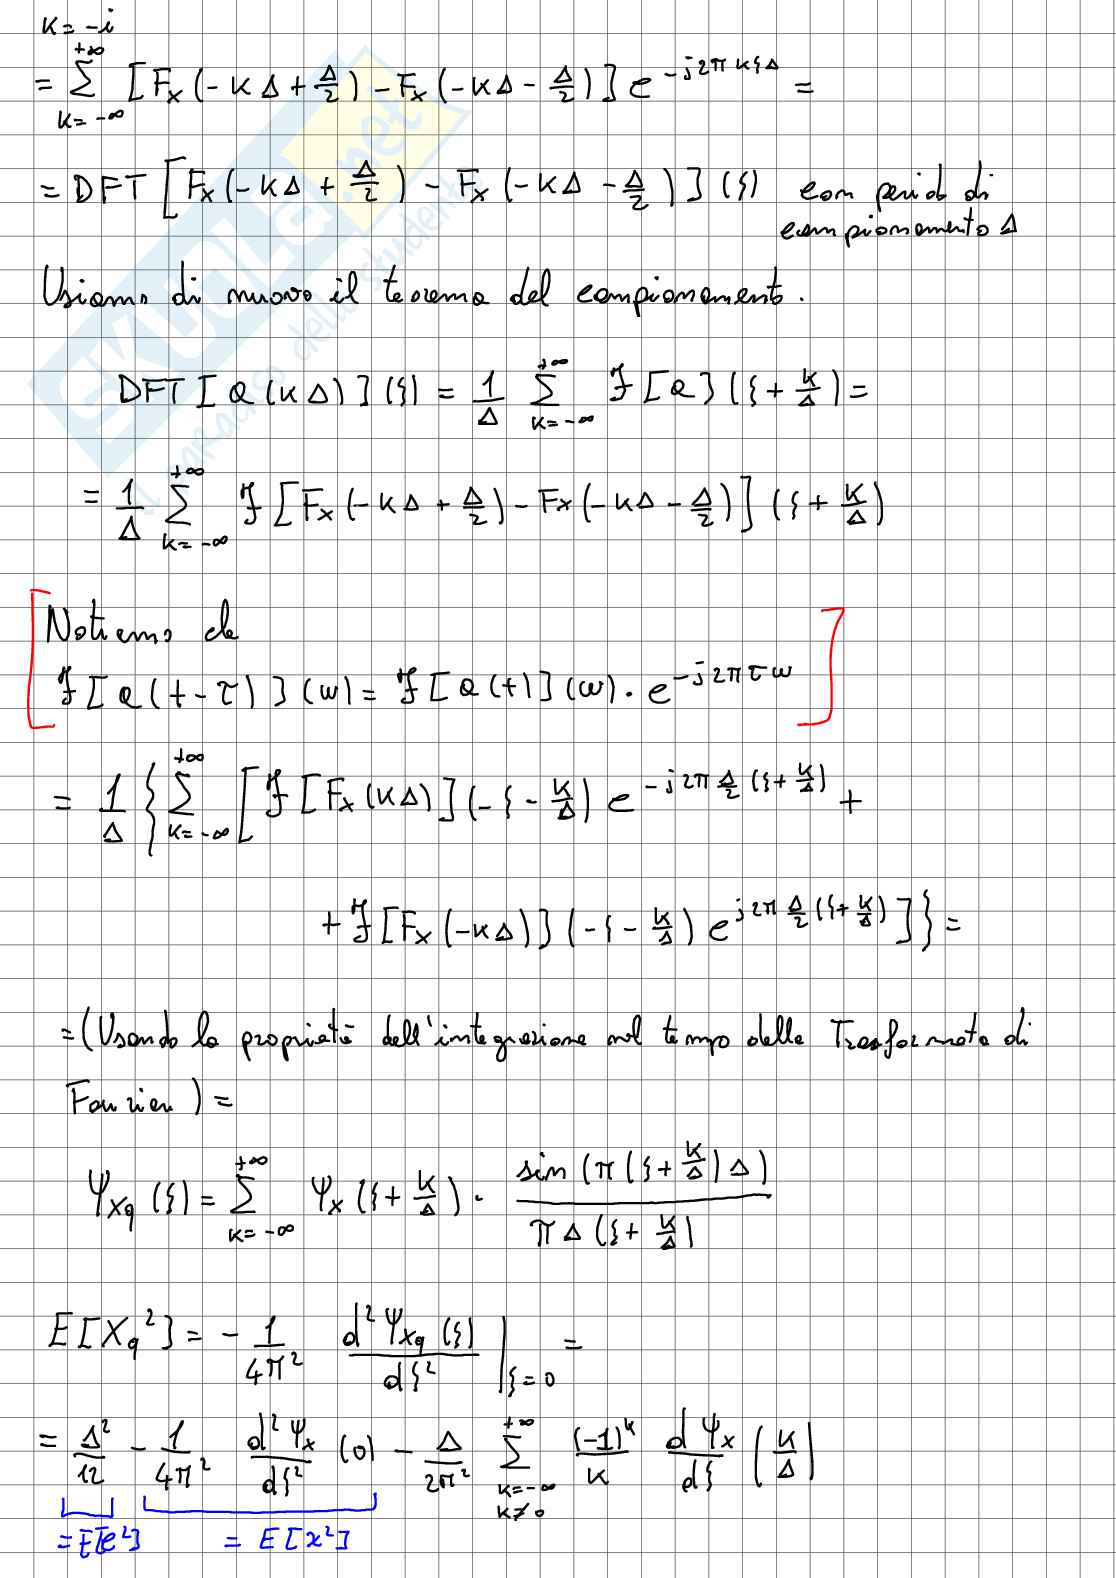 K = -i
= \sum_{K=-∞}^{+∞} [F_x(-KΔ + Δ/2) - F_x(-KΔ - Δ/2)] e^{-j2πKξΔ} =
= DFT [F_x(-KΔ + Δ/2) - F_x(-KΔ - Δ/2)] (ξ) con period di
campionamento Δ
Usiamo di nuovo il teorema del campionamento.
DFT [a(KΔ)] (ξ) = 1/Δ \sum_{K=-∞}^{+∞} ℱ[a] (ξ + K/Δ) =
= 1/Δ \sum_{K=-∞}^{+∞} ℱ[F_x(-KΔ + Δ/2) - F_x(-KΔ - Δ/2)] (ξ + K/Δ)
Notiamo che
ℱ[a(t-τ)](w) = ℱ[a(t)](w) · e^{-j2πτw}
= 1/Δ { \sum_{K=-∞}^{+∞} [ ℱ[F_x(KΔ)] (-ξ - K/Δ) e^{-j2π Δ/2 (ξ + K/Δ)} +
+ ℱ[F_x(-KΔ)] (-ξ - K/Δ) e^{j2π Δ/2 (ξ + K/Δ)} ] } =
= (Usando la proprietà dell'integrazione nel tempo della Trasformata di
Fourier) =
Ψ_{Xq}(ξ) = \sum_{K=-∞}^{+∞} Ψ_x(ξ + K/Δ) · sin(π(ξ + K/Δ)Δ) / πΔ(ξ + K/Δ)
E[X_q^2] = - 1/4π^2 d^2Ψ_{Xq}(ξ)/dξ^2 |_{ξ=0} =
= Δ^2/12 - 1/4π^2 d^2Ψ_x/dξ^2 (0) - Δ/2π^2 \sum_{K=-∞, K≠0}^{+∞} (-1)^K/K dΨ_x/dξ (K/Δ)
= E[e^2] = E[x^2]
SKUOLA.net
il paradiso dello studente